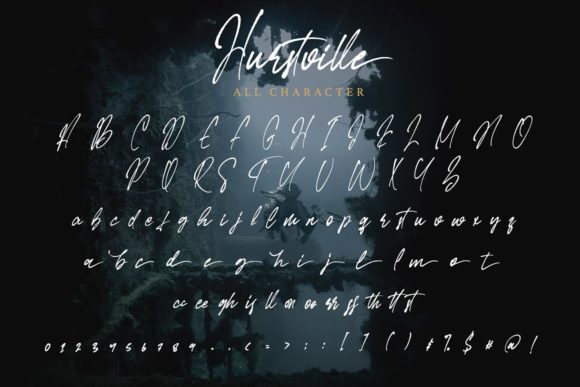 Hurstville
ALL CHARACTER
A B C D E F G H I J K L M N O
P Q R S T U V W X Y Z
a b c d e f g h i j k l m n o p q r s t u v w x y z
a b c d e g h i r l m o t
cc ee gh is ll on oo rr ss th tt st
0 1 2 3 4 5 6 7 8 9 . , ( = > : ; [ ] ( ) # % $ # @ !